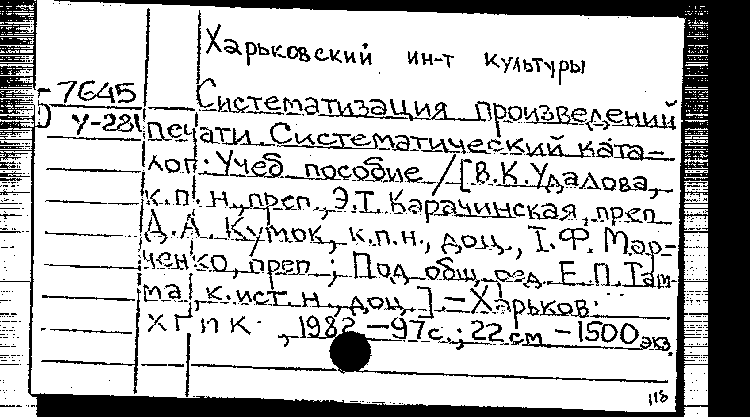 Харьковский ин-т культуры
7645 Систематизация произведений
У-281 печати. Систематический ката-
лог: Учеб пособие / [В.К.Удалова,
к.п.н., преп., Э.Т. Карачинская, преп.
Д.А. Кумок, к.п.н., доц., І.Ф. Мар-
ченко, преп.; Под общ. ред. Е.П. Там-
ма, к.ист.н., доц.] – Харьков:
ХГИК, 1982 – 97с.; 22 см – 1500 экз.
118